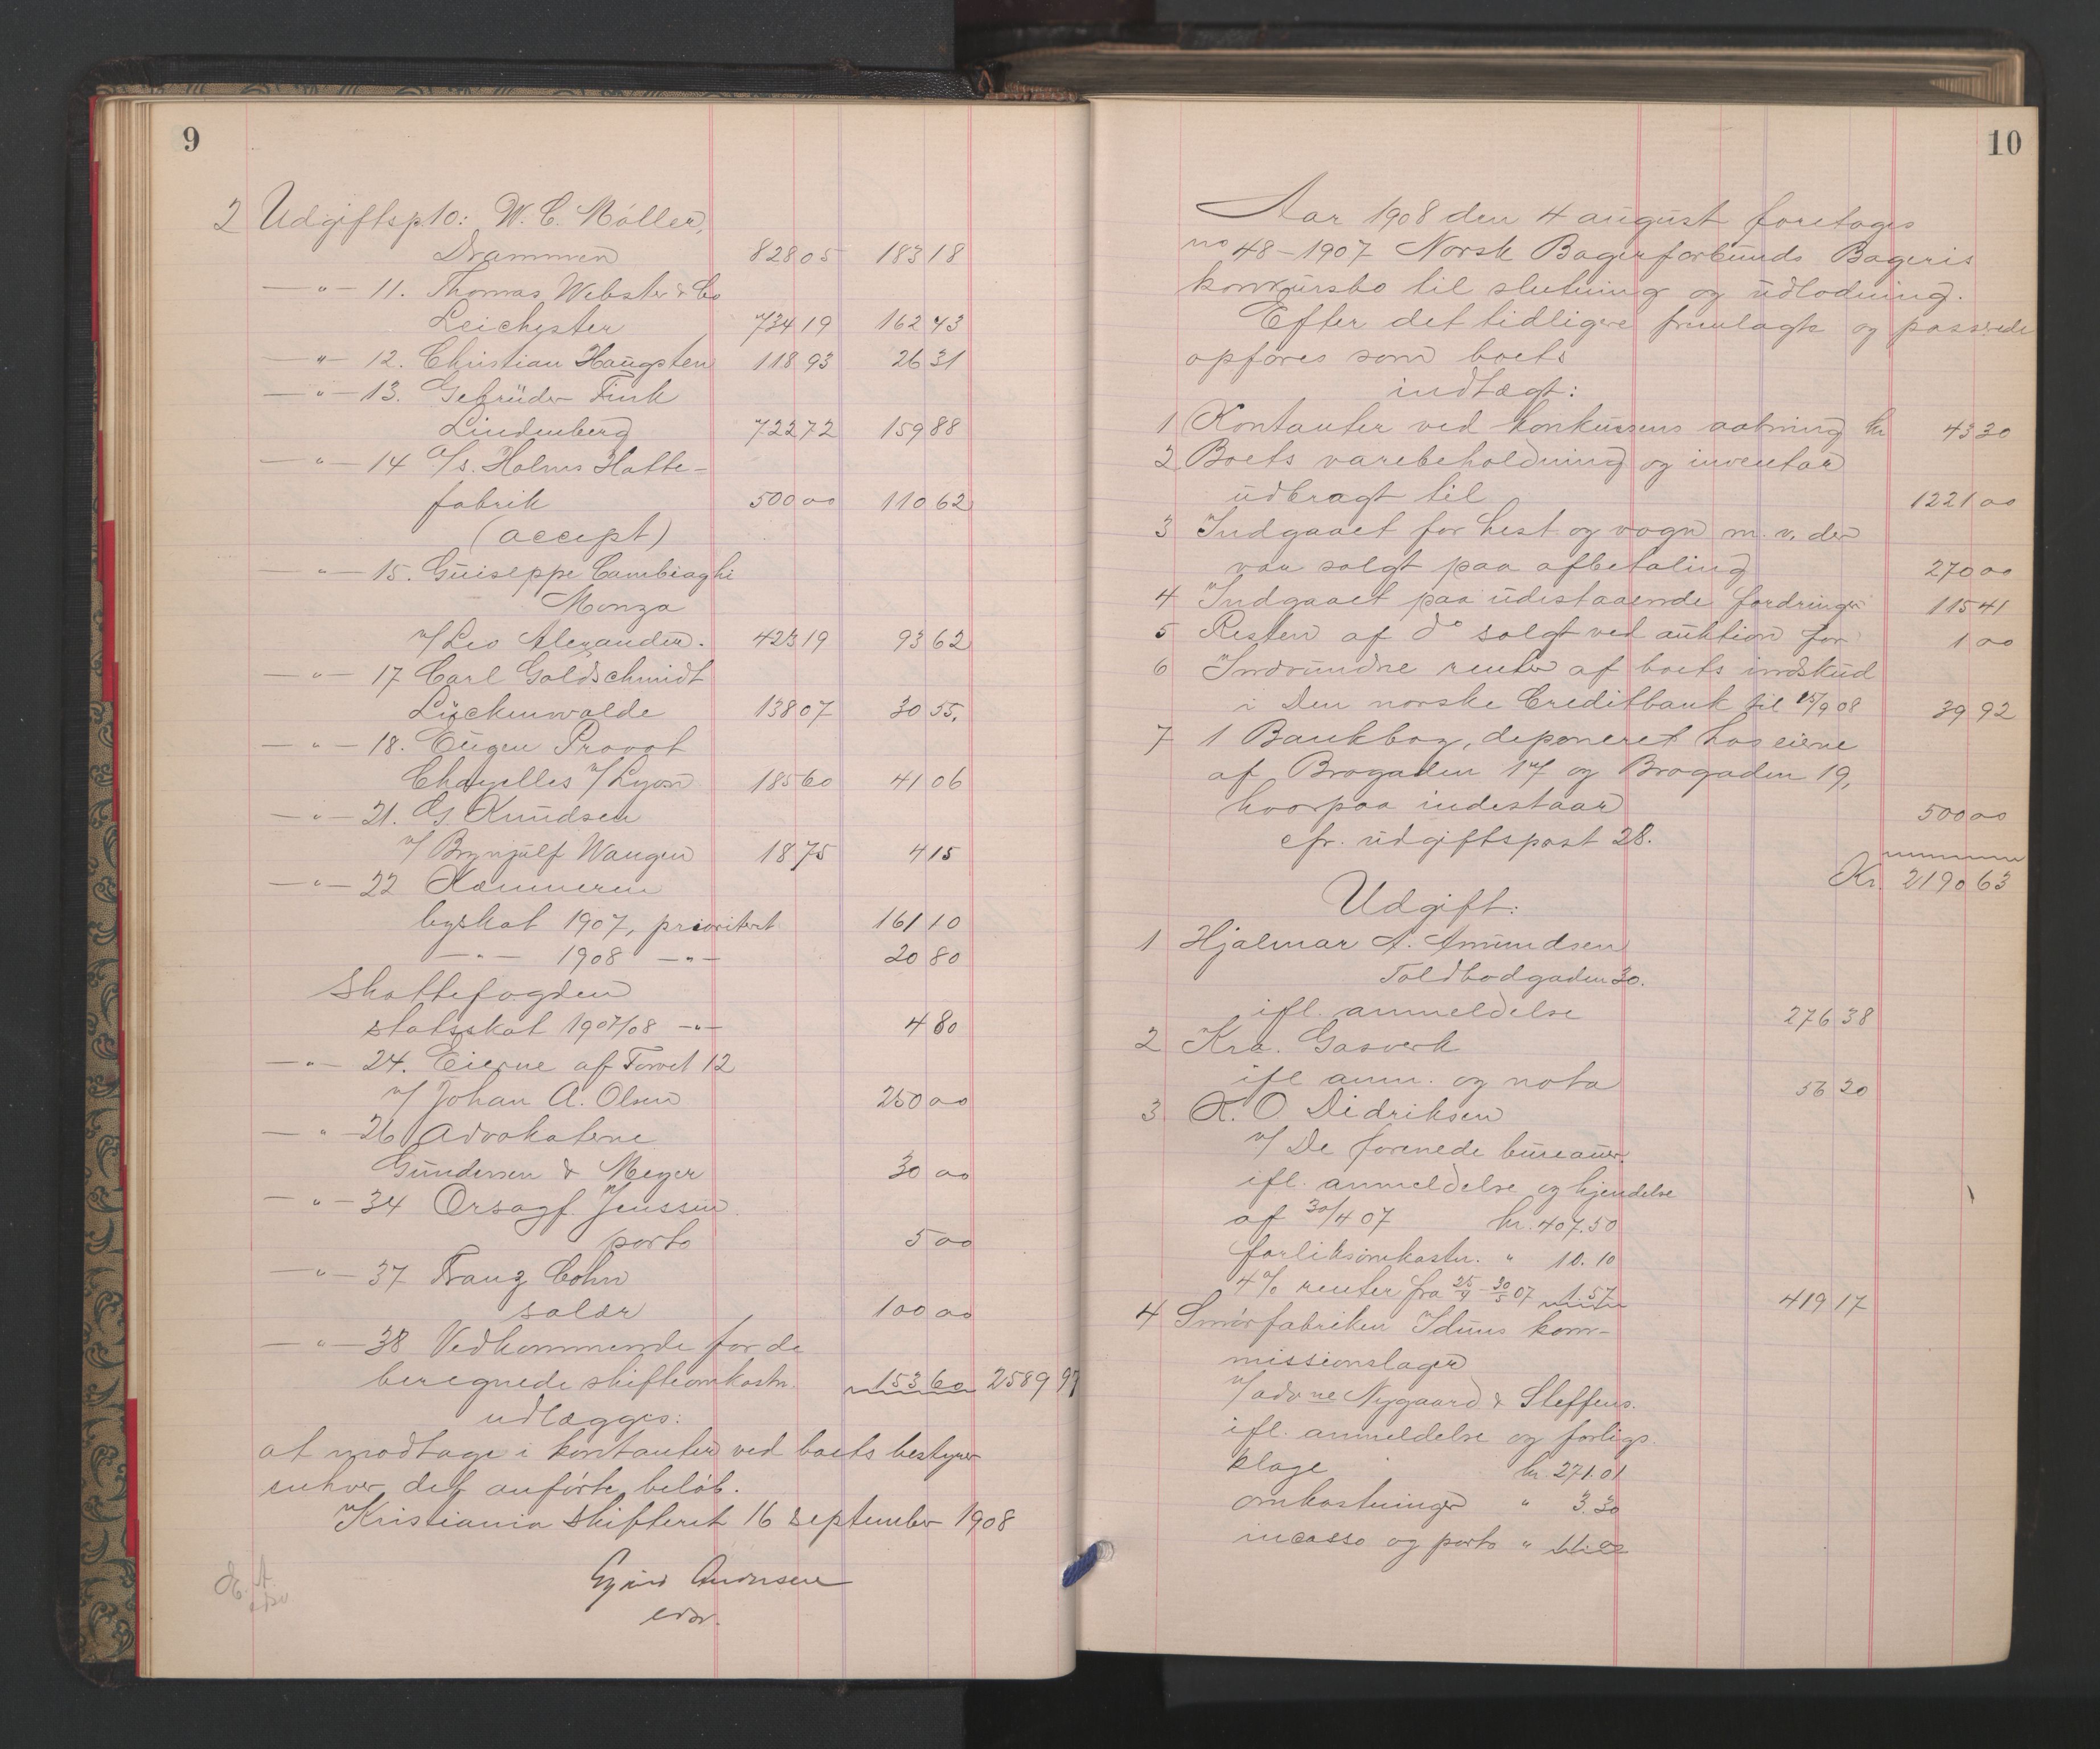 9
2 Udgiftsp 10: W. C. Møller,
Drammen 828 05 183 18
— " — 11. Thomas Webster & Co
Leichester 734 19 162 43
— " — 12. Christian Haugsten 118 93 26 31
— " — 13. Gebrüder Fink
Lindenberg 722 72 159 88
— " — 14 A/S. Holms Hatte-
fabrik 500 00 110 62
(accept)
— " — 15. Guiseppe Cambiaghi
Monza
v/ Leo Alexander. 423 19 93 62
— " — 17 Carl Goldschmidt
Lückenwalde 138 07 30 55.
— " — 18. Eugen Provot
Chazelles v/ Lyon 185 60 41 06
— " — 21. G. Knudsen
v/ Brynjulf Wangen 18 75 4 15
— " — 22 Kæmneren
byskat 1907, prioritert 161 10
— " — 1908 — " — 20 80
Skattefogden
statsskat 1907/08 — " — 4 80
— " — 24. Eierne af Torvet 12
v/ Johan A. Olsen 250 00
— " — 26 Advokaterne
Gundersen & Meyer 30 00
— " — 34 Orsagf. Jenssen.
porto 5 00
— " — 37 Franz Cohn
salær 100 00
— " — 38 Vedkommende for de
beregnede skifteomkostn. 153 60 2589 97
udlægges:
at modtage i kontanter ved boets bestyrer
enhver det anførte beløb.
Kristiania Skifteret 16 september 1908
10
Aar 1908 den 4 august foretoges
no 48 – 1907 Norsk Bagerforbunds Bageris
konkursbo til slutning og udlodning.
Efter det tidligere fremlagte og passerede
opføres som boets
indtægt:
1 Kontanter ved konkursens aabning kr 43 30
2 Boets varebeholdning og inventar
udbragt til 1221 00
3 Indgaaet for hest og vogn m. v. der
var solgt paa afbetaling 270 00
4 Indgaaet paa udestaaende fordringer 115 41
5 Resten af do solgt ved auktion for 1 00
6 Indvundne renter af boets indskud
i Den norske Creditbank til 15/9 08 39 92
7 1 Bankbog, deponeret hos eierne
af Brogaden 17 og Brogaden 19,
hvorpaa indestaar 500 00
cfr. udgiftspost 28.
Kr. 2190 63
Udgift:
1 Hjalmar A. Amundsen
Toldbodgaden 30.
ifl. anmeldelse 276 38
2 Kra. Gasverk
ifl anm. og nota 56 20
3 K. O. Didriksen
v/ De forenede bureauer.
ifl. anmeldelse og kjendelse
af 30/4 07 kr. 407.50
forliksomkostn. " 10.10
4% renter fra 25/4 – 30/5 07 1.57 419 17
4 Smørfabriken Iduns kom-
missionslager
v/ adv ne Nygaard & Steffens.
ifl. anmeldelse og forligs
klage kr. 271.01
omkostninger " 3.30
incasso og porto "